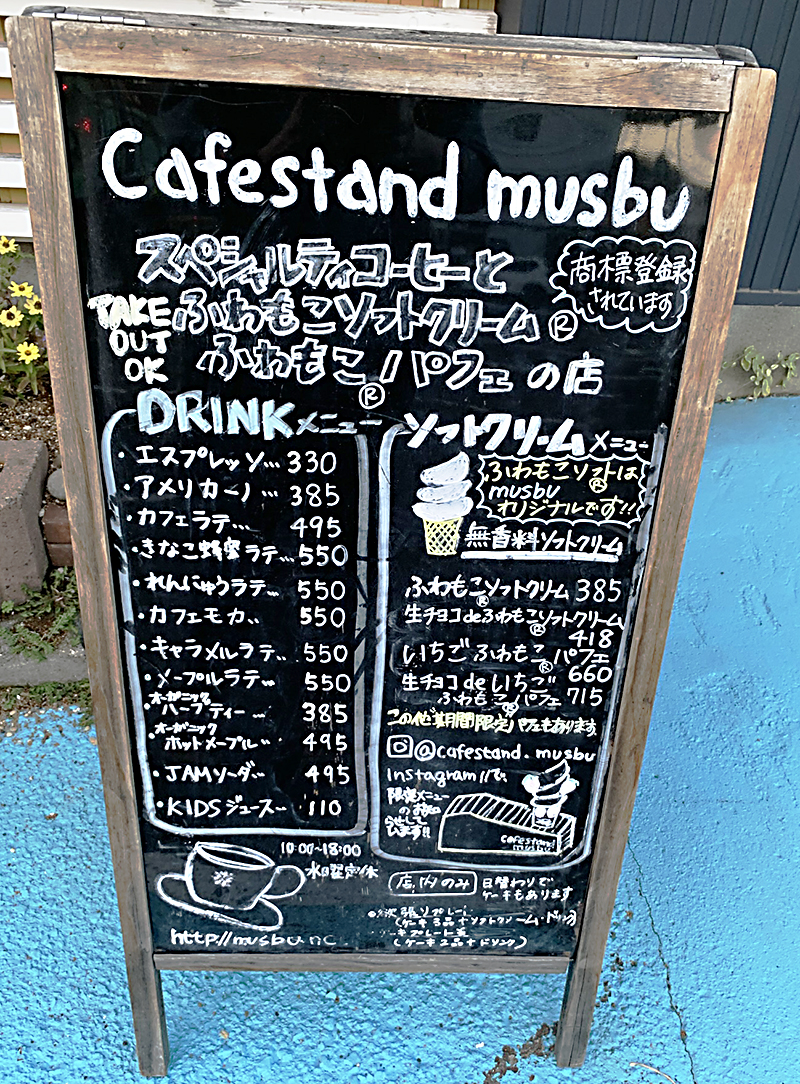 Cafestand musbu
スペシャルティコーヒーと
商標登録
されています
TAKE
OUT
OK
ふわもこソフトクリーム®
ふわもこパフェの店
®
DRINKメニュー
・エスプレッソ…330
・アメリカーノ…385
・カフェラテ…495
・きなこ蜂蜜ラテ…550
・れんにゅうラテ…550
・カフェモカ…550
・キャラメルラテ…550
・メープルラテ…550
オーガニック
・ハーブティー…385
オーガニック
・ホットメープル…495
・JAMソーダ…495
・KIDSジュース…110
ソフトクリームメニュー
ふわもこソフトは
®
musbu
オリジナルです!!
無香料ソフトクリーム
ふわもこソフトクリーム 385
®
生チョコdeふわもこソフトクリーム
® 418
いちごふわもこパフェ
® 660
生チョコdeいちご
ふわもこパフェ 715
®
この他期間限定パフェもあります。
@cafestand.musbu
Instagramにて、
限定メニュー
のお知
らせして
います!!
cafestand
musbu
10:00~18:00
水曜定休
http://musbu.nc
店内のみ
日替わりで
ケーキもあります
張りプレート
(ケーキ3品+ソフトクリーム・ドリンク)
キプレート
(ケーキ2品+ドリンク)